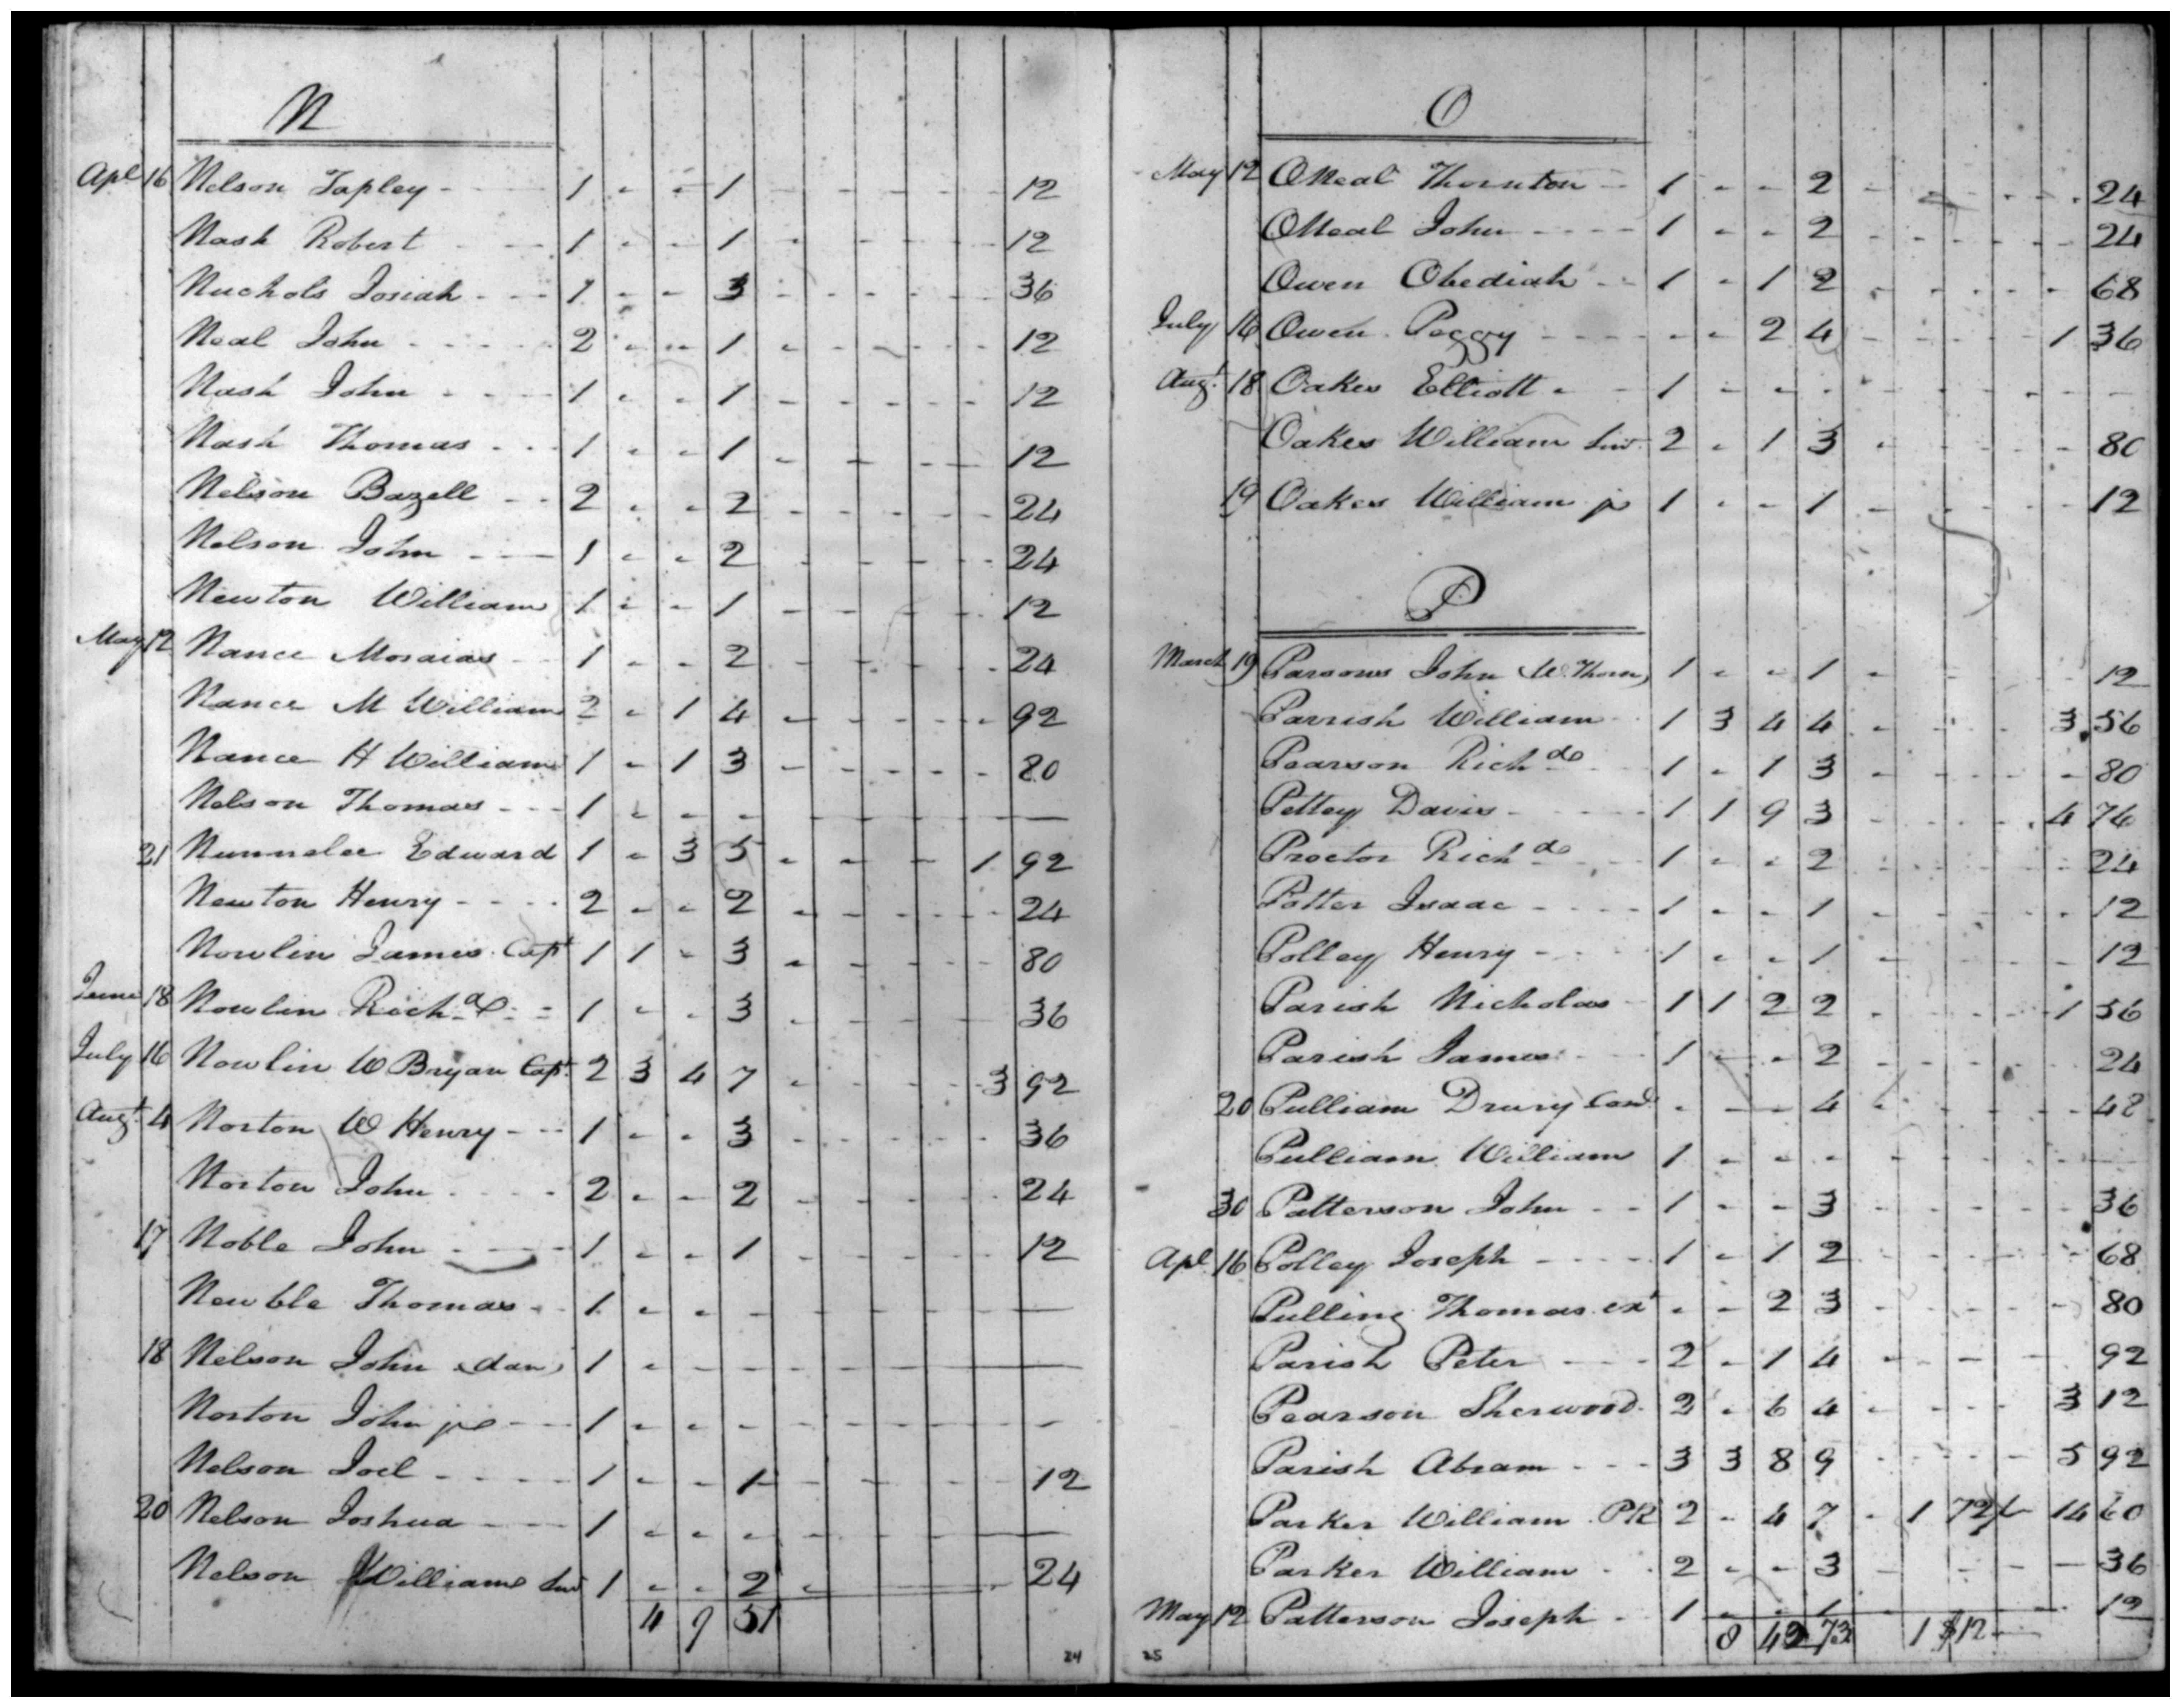 N
Apl 16 Nelson Tapley - 1 - - 1 - - - - - 12
Nash Robert - - 1 - - 1 - - - - - 12
Nuchols Josiah - - - 1 - - 3 - - - - - 36
Neal John - - - - - 2 - - 1 - - - - - 12
Nash John - - - 1 - - 1 - - - - - 12
Nash Thomas - - - 1 - - 1 - - - - 12
Nelson Bazell - - 2 - - 2 - - - - - 24
Nelson John - - - 1 - - 2 - - - - - 24
Newton William 1 - - 1 - - - - - 12
May 12 Nance - - 1 - - 2 - - - - - 24
Nance M William 2 - 1 4 - - - - - 92
Nance H William 1 - 1 3 - - - - - 80
Nelson Thomas - - - 1 - - - - - - - - —
21 Nunnelee Edward 1 - 3 5 - - - 1 92
Newton Henry - - - - 2 - - 2 - - - - - 24
Nowlin James Capt 1 1 - 3 - - - - - 80
June 18 Nowlin Richd - - 1 - - 3 - - - - 36
July 16 Nowlin W Bryan Capt. 2 3 4 7 - - - - - 3 92
Augt. 4 Norton W Henry - - - 1 - - 3 - - - - - 36
Norton John - - - - 2 - - 2 - - - - - 24
17 Noble John - - - - 1 - - 1 - - - - - 12
Newble Thomas - - 1 - - - - - - - - —
18 Nelson John (dan) 1 - - - - - - - - —
Norton John jr - - - 1 - - - - - - - - -
Nelson Joel - - - - 1 - - 1 - - - - - 12
20 Nelson Joshua - - - 1 - - - - - - - - —
Nelson William Snr 1 - - 2 - — - 24
4 9 51
24
O
May 12 ONeal Thornton - 1 - - 2 - - - - - 24
ONeal John - - - - 1 - - 2 - - - - - 24
Owen Obediah - - 1 - 1 2 - - - - - 68
July 16 Owen Peggy - - - - - - 2 4 - - - - 1 36
Augt. 18 Oakes Elliott - - 1 - - - - - - - - -
Oakes William Snr. 2 - 1 3 - - - - - 80
19 Oakes William jr 1 - - 1 - - - - - 12
P
March 19 Parsons John (W. Thorn) 1 - - 1 - - 12
Parrish William - 1 3 4 4 - - - - 3 56
Pearson Richd - 1 - 1 3 - - - - - 80
Pettey Davis - - - - - 1 1 9 3 - - - - 4 76
Proctor Richd - - 1 - - 2 - - - - - 24
Potter Isaac - - - - 1 - - 1 - - - - - 12
Polley Henry - - - 1 - - 1 - - - - - 12
Parish Nicholas - 1 1 2 2 - - - - 1 56
Parish James - - - 1 - - 2 - - - - - 24
20 Pulliam Drury Cond. - - - 4 - - - - - 48
Pulliam William 1 - - - - - - - - —
30 Patterson John - - 1 - - 3 - - - - - 36
Apl 16 Polley Joseph - - - - 1 - 1 2 - - - - - 68
Pulling Thomas ext - - 2 3 - - - - - 80
Parish Peter - - - 2 - 1 4 - - - - 92
Pearson Sherwood 2 - 6 4 - - - - 3 12
Parish Abram - - - 3 3 8 9 - - - - 5 92
Parker William PR 2 - 4 7 - 1 72 14 60
Parker William - - 2 - - 3 - - - - 36
May 12 Patterson Joseph - 1 - - 1 - - 12
8 43 73 1 $12
25